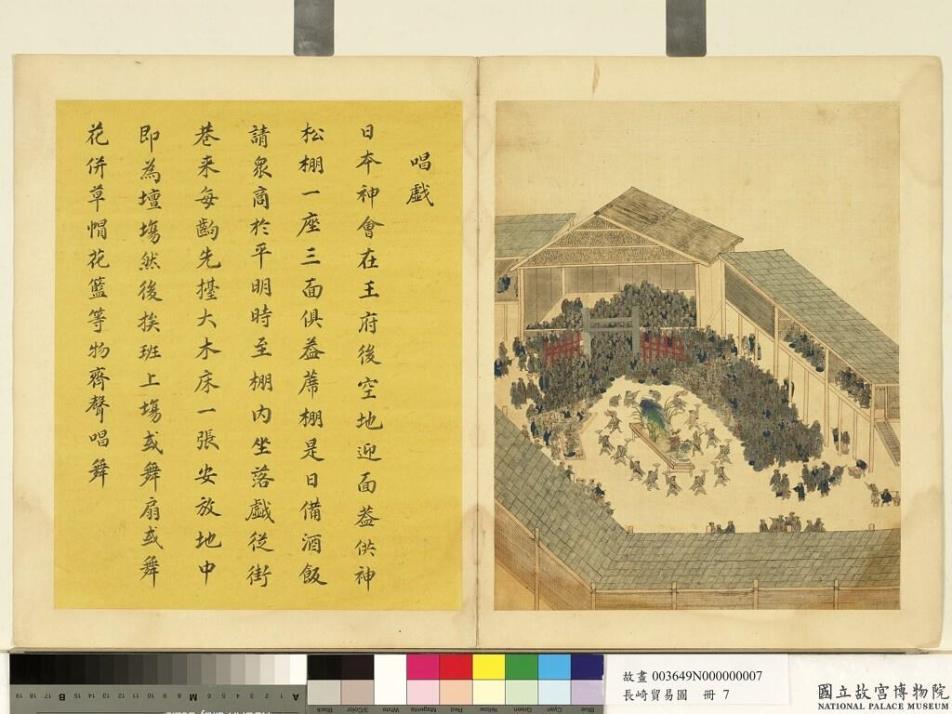 唱戲
日本神會在王府後空地迎面蓋供神
松棚一座三面俱蓋蓆棚是日備酒飯
請衆商於平明時至棚内坐落戲從街
巷来每齣先擡大木床一張安放地中
即為壇塲然後挨班上塲或舞扇或舞
花併草帽花籃等物齊聲唱舞
故畫 003649N000000007
長崎貿易圖 冊 7
國立故宮博物院
NATIONAL PALACE MUSEUM